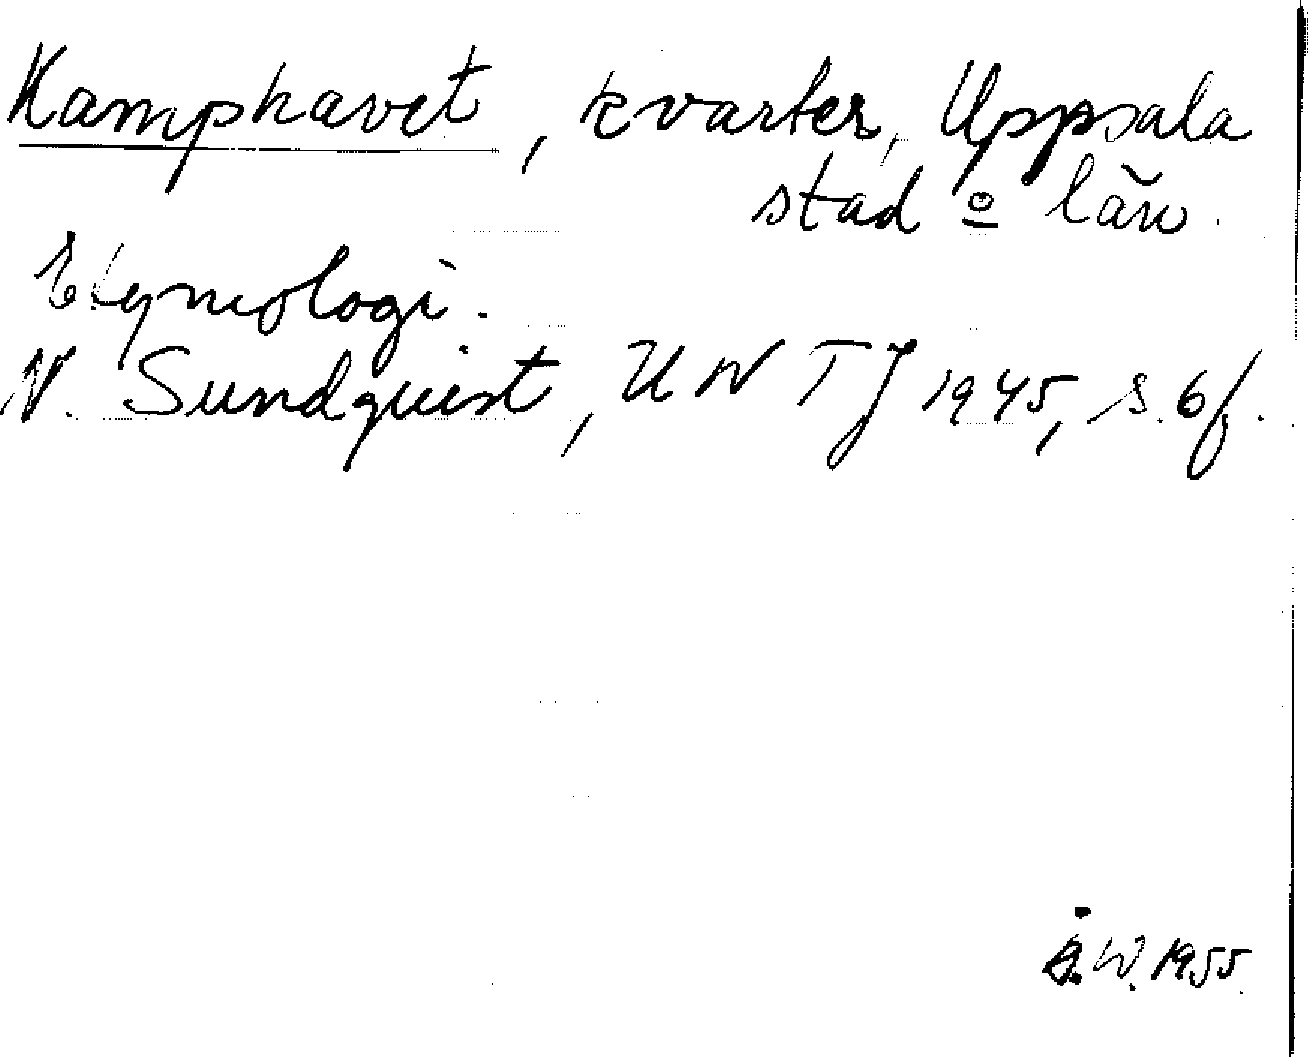 Kamphavet, kvarter, Uppsala
stad o län.
Etymologi.
N. Sundquist, UNTJ 1945, s. 6f.
Å.W. 1955.